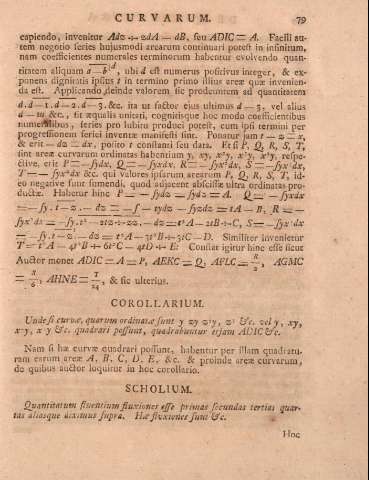 CURVARUM. 79
capiendo, invenitur Adz + zdA — dB, seu ADIC = A. Facili au-
tem negotio series hujusmodi arearum continuari potest in infinitum,
nam coefficientes numerales terminorum habentur evolvendo quan-
titatem aliquam a — b|^d, ubi d est numerus positivus integer, & ex-
ponens dignitatis ipsius t in termino primo illius areæ quæ invenien-
da est. Applicando deinde valorem sic productum ad quantitatem
d. d — 1. d — 2. d — 3. &c. ita ut factor ejus ultimus d — 3, vel alius
d — m &c., sit æqualis unitati, cognitisque hoc modo coefficientibus
numeralibus, series pro lubitu produci potest, cum ipsi termini per
progressionem serici invente manifesti sint. Ponatur jam t — z = x,
& erit — dz = dx, posito t constanti seu data. Et si P, Q, R, S, T,
sint areæ curvarum ordinatas habentium y, xy, x²y, x³y, x⁴y, respe-
ctive, erit P = — fydx, Q = — fyxdx, R = — fyx²dx, S = — fyx³dx,
T = — fyx⁴dx &c. qui valores ipsarum arearum P, Q, R, S, T, id-
eo negative sunt sumendi, quod adjacent abscissæ ultra ordinatas pro-
ductæ. Habetur hinc P = — fydx = fydz = A. Q = — fyxdx
= — fy. t — z. — dz = — f — tydz — fyzdz = tA — B, R = —
fyx²dx = — fy. t² — 2tz + zz. — dz = t²A — 2tB + C, S = — fyx³dx
= — fy. t — z|³. — dz = t³A — 3t²B + 3tC — D. Similiter invenietur
T = t⁴A — 4t³B + 6t²C — 4tD + E: Constat igitur hinc esse sicut
Auctor monet ADIC = A = P, AEKC = Q, AFLC = R/2, AGMC
= S/6, AHNE = T/24, & sic ulterius.
COROLLARIUM.
Unde si curvæ, quarum ordinatæ sunt y zy z²y, z³ &c. vel y, xy,
x²y, x³y &c. quadrari possunt, quadrabuntur etjam ADIC &c.
Nam si hæ curvæ quadrari possunt, habentur per illam quadratu-
ram earum areæ A, B, C, D, E, &c. & proinde areæ curvarum,
de quibus auctor loquitur in hoc corollario.
SCHOLIUM.
Quantitatum fluentium fluxiones esse primas secundas tertias quar-
tas aliasque diximus supra. Hæ fluxiones sunt &c.
Hoc